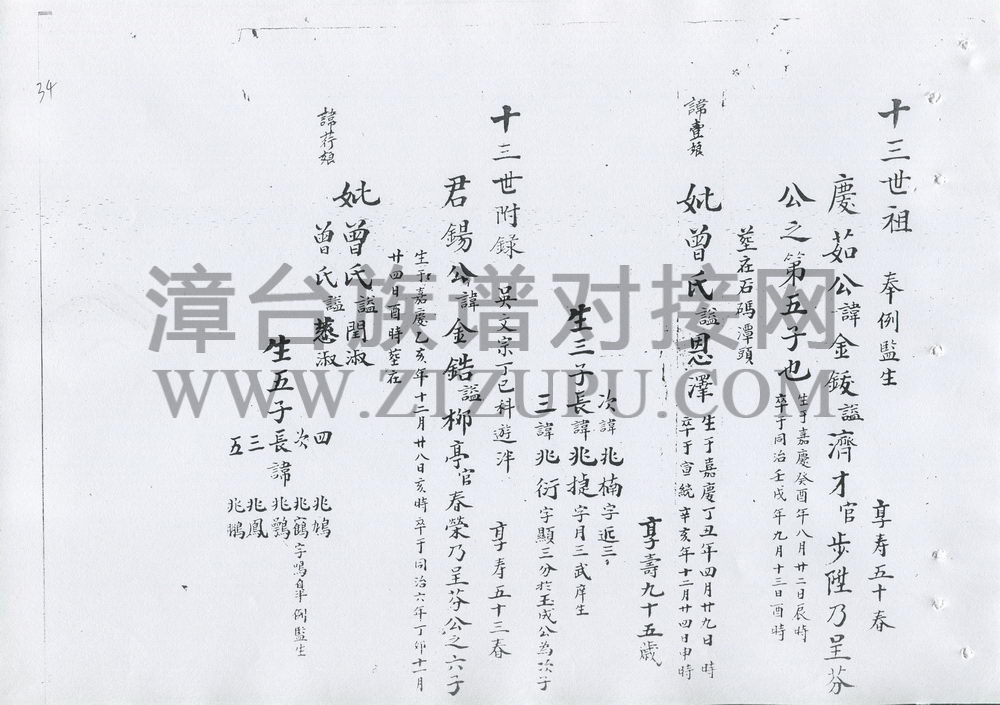 34
十三世祖 奉例監生 享寿五十春
慶茹公諱金鍰謚濟才官步陞乃呈芬
公之第五子也 生于嘉慶癸酉年八月廿二日辰時
卒于同治壬戌年九月十三日酉時
塟在石碼潭頭
諱壹娘
妣曾氏謚恩澤 生于嘉慶丁丑年四月廿九日 時
卒于宣統辛亥年十二月廿四日申時
享壽九十五歲
次諱兆楠字近三
生三子長諱兆捷字月三武庠生
三諱兆衍字顯三分於玉成公為次子
十三世附錄 吳文宗丁巳科遊泮 享寿五十三春
君錫公諱金鋯謚柳亭官春榮乃呈芬公之六子
生于嘉慶乙亥年十二月廿八日亥時卒于同治六年丁卯十一月
廿四日酉時塟在
諱荇娘
妣曾氏謚閏淑
曾氏謚慈淑
四 兆鳩
次 兆鶴字鳴皐例監生
生五子長諱兆鸚
三 兆鳳
五 兆鵬
漳台族谱对接网
WWW.ZIZUPU.COM